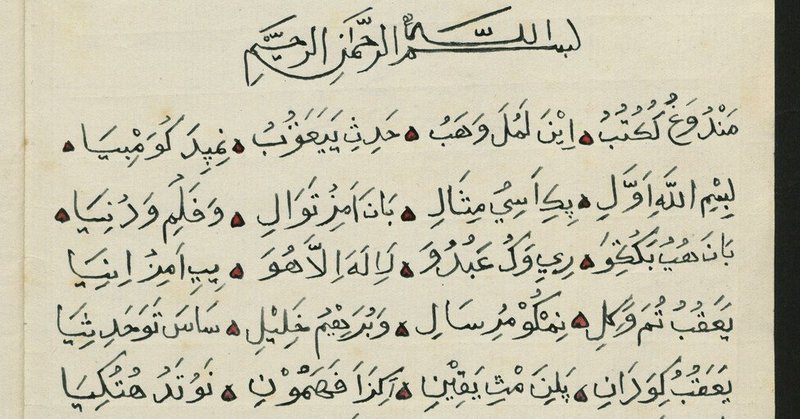 بسم اللّٰه الرَّحْمَنِ الرَّحِيْمِ
مَنْدُوغُ كُكُتُبُ اِيْنَ لَمُلَ وَهَبُ حَدِثِ يَيَعَقُبُ نِمِپِدَ كُوَمْبِيَا
بِسْمِ اللَّهِ اَوَّلِ پِكِ اَسِيُ مِثَالِ بَانَ اَمِزُ تَوَالِ وَفَلَمِ وَدُنِيَا
بَانَ هُبُ رِيِ وَكُ عَبُدُوَ لَا اِلَهَ اِلَّا هُوَ يِپِ اَمِزُ اِنِيَا
يَعَقُبُ تُمَ وَكِلِ نِمْكُوْ مُرِسَالِ وَبُرَهِيْمُ خَلِيْلِ سَاسَ تَوَحَدِثِيَا
يَعَقُبُ كِوَدَانِ پَلِنَ مْتِ يَقِيْنِ اَكِزَاَ فَهَمُوْنِ نَوُتَدُ هُتُكِيَا